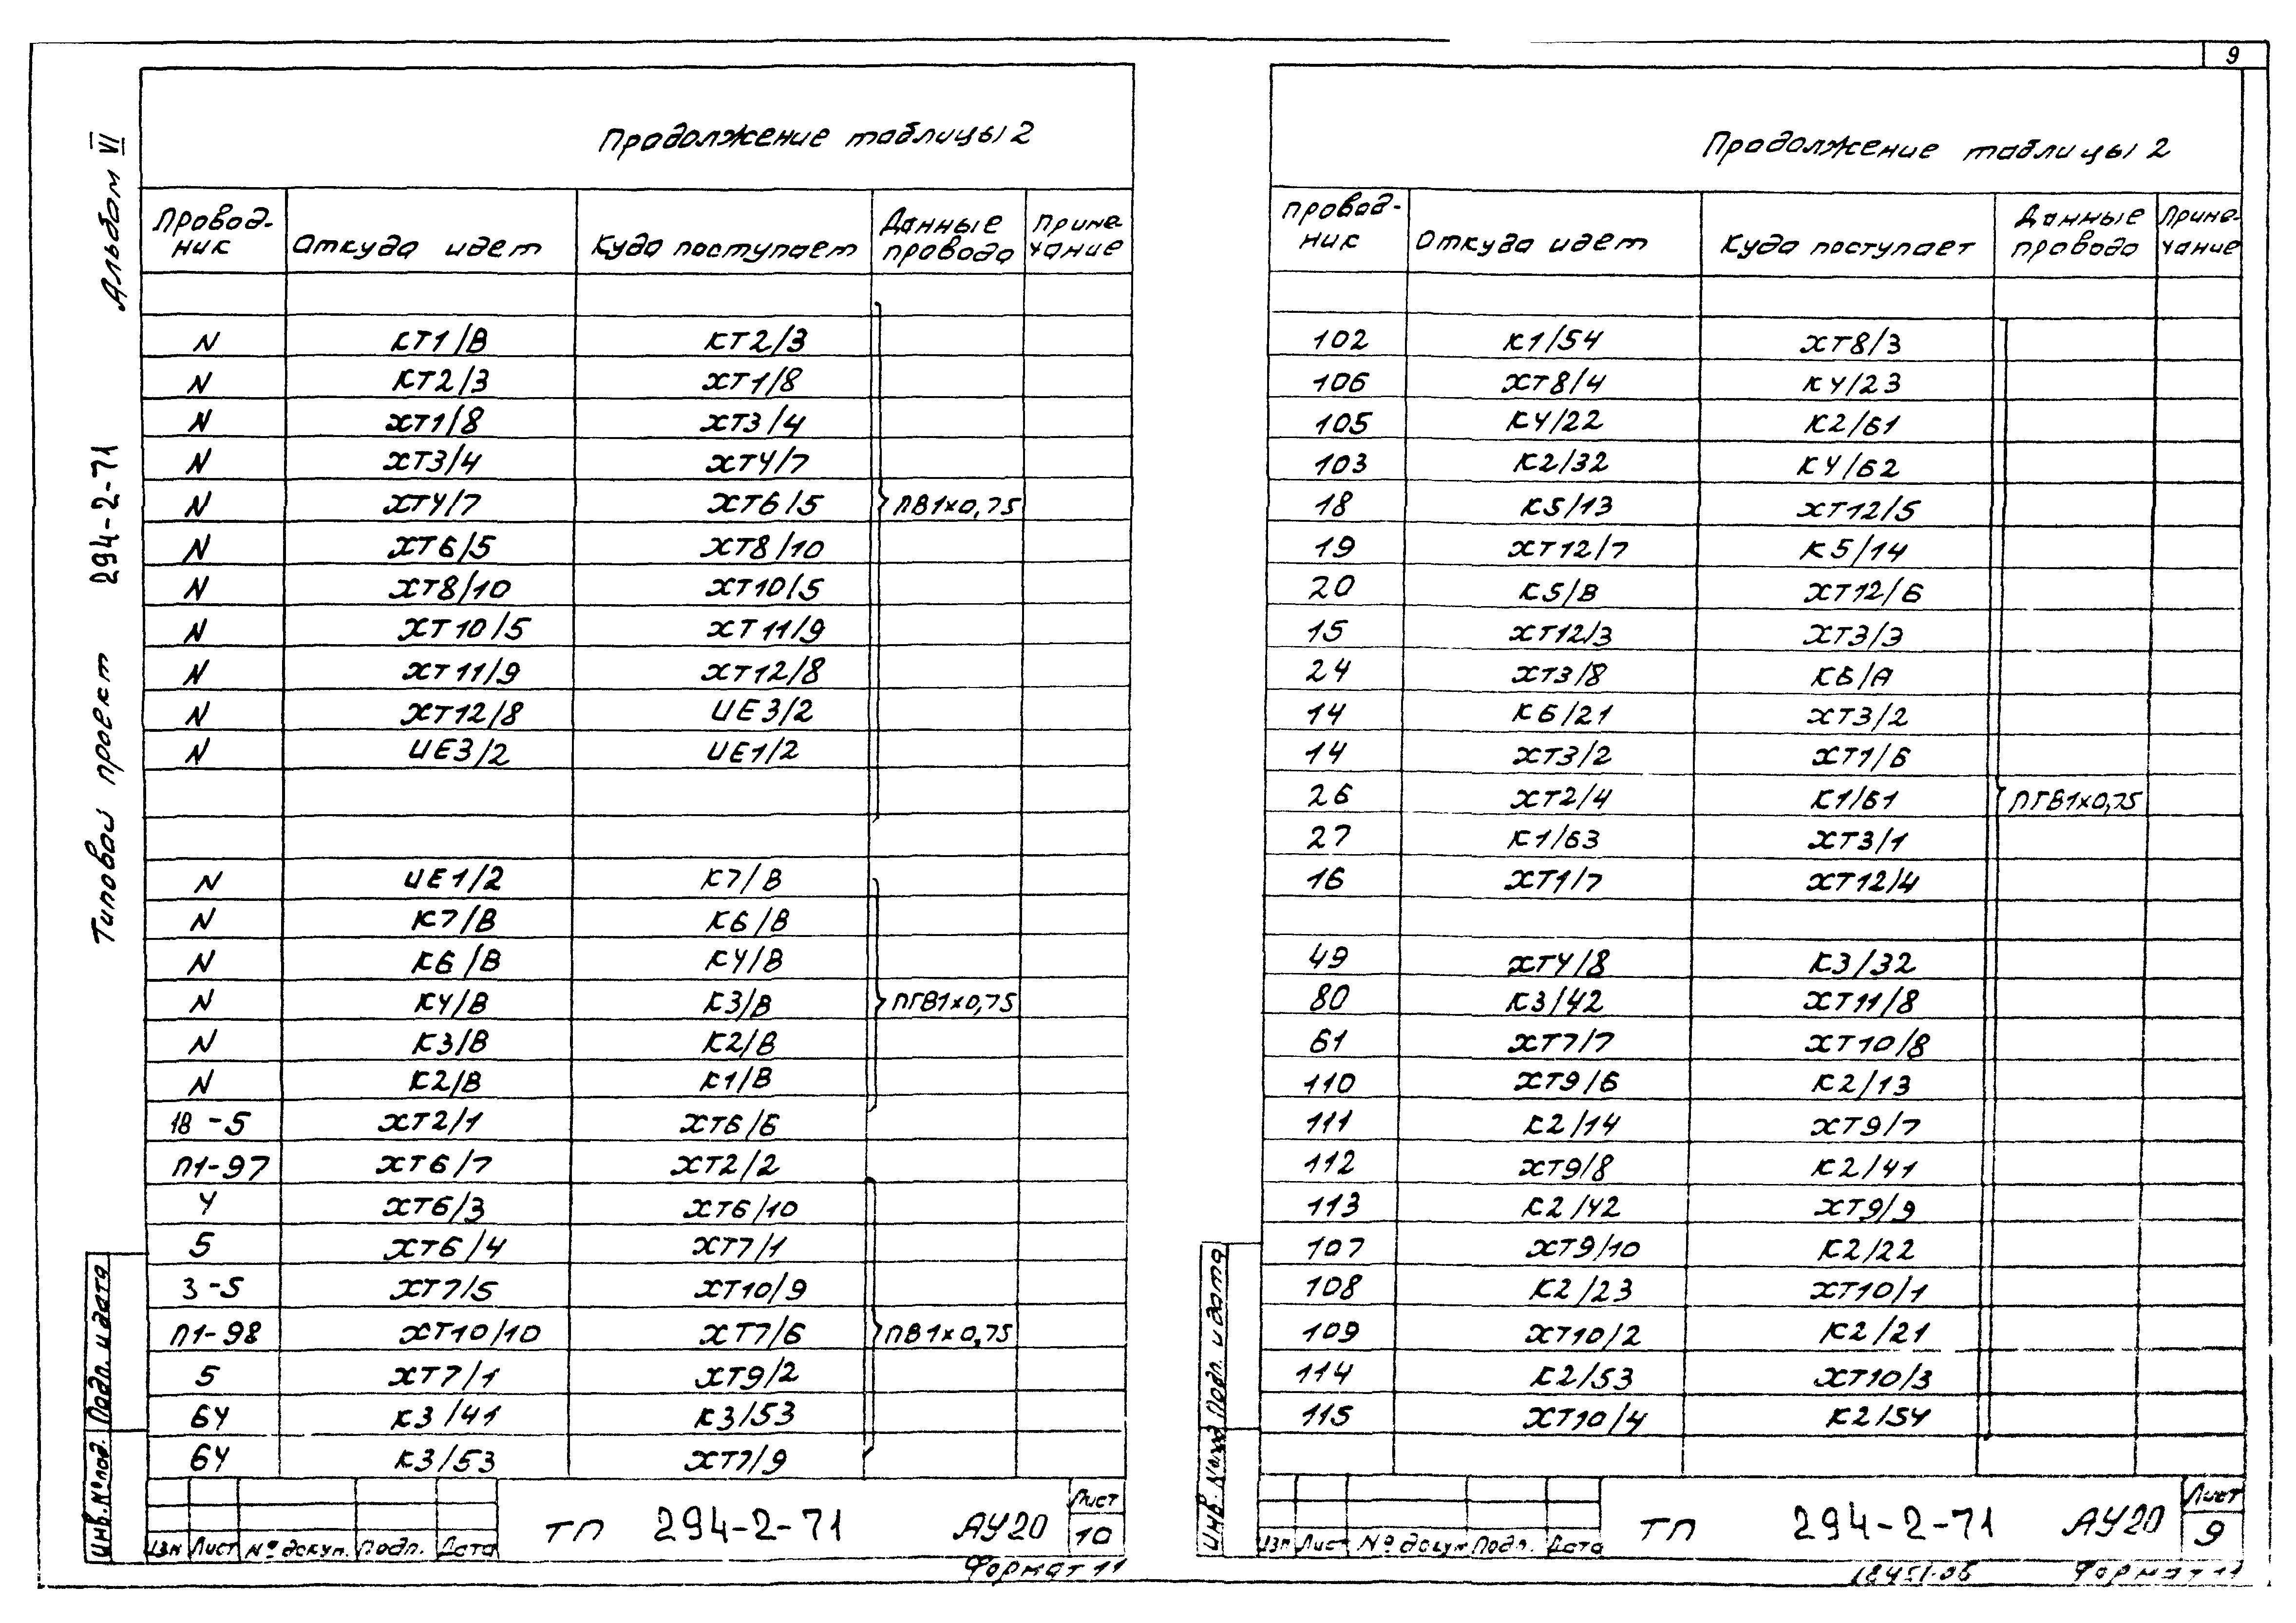 9
Альбом VI
Типовой проект 294-2-71
Продолжение таблицы 2
Провод-ник Откуда идет Куда поступает Данные провода Приме-чание
N КТ1/В КТ2/3
N КТ2/3 ХТ1/8
N ХТ1/8 ХТ3/4
N ХТ3/4 ХТ4/7
N ХТ4/7 ХТ6/5 ПВ1х0,75
N ХТ6/5 ХТ8/10
N ХТ8/10 ХТ10/5
N ХТ10/5 ХТ11/9
N ХТ11/9 ХТ12/8
N ХТ12/8 UE3/2
N UE3/2 UE1/2
N UE1/2 К7/В
N К7/В К6/В
N К6/В К4/В
N К4/В К3/В ПГВ1х0,75
N К3/В К2/В
N К2/В К1/В
1В-5 ХТ2/1 ХТ6/6
П1-97 ХТ6/7 ХТ2/2
4 ХТ6/3 ХТ6/10
5 ХТ6/4 ХТ7/1
3-5 ХТ7/5 ХТ10/9
П1-98 ХТ10/10 ХТ7/6 ПВ1х0,75
5 ХТ7/1 ХТ9/2
64 К3/41 К3/53
64 К3/53 ХТ7/9
Инв.№ под. Подп. и дата
Изм Лист № докум. Подп. Дата
ТП 294-2-71 АУ20
Лист
10
Формат 11
Продолжение таблицы 2
Провод-ник Откуда идет Куда поступает Данные провода Приме-чание
102 К1/54 ХТ8/3
106 ХТ8/4 К4/23
105 К4/22 К2/61
103 К2/32 К4/62
18 К5/13 ХТ12/5
19 ХТ12/7 К5/14
20 К5/В ХТ12/6
15 ХТ12/3 ХТ3/3
24 ХТ3/8 К6/А
14 К6/21 ХТ3/2
14 ХТ3/2 ХТ1/6
26 ХТ2/4 К1/61 ПГВ1х0,75
27 К1/63 ХТ3/1
16 ХТ1/7 ХТ12/4
49 ХТ4/8 К3/32
80 К3/42 ХТ11/8
61 ХТ7/7 ХТ10/8
110 ХТ9/6 К2/13
111 К2/14 ХТ9/7
112 ХТ9/8 К2/41
113 К2/42 ХТ9/9
107 ХТ9/10 К2/22
108 К2/23 ХТ10/1
109 ХТ10/2 К2/21
114 К2/53 ХТ10/3
115 ХТ10/4 К2/54
Инв. № под Подп. и дата
Изм Лист № докум Подп. Дата
ТП 294-2-71 АУ20
Лист
9
18451-06 Формат 11